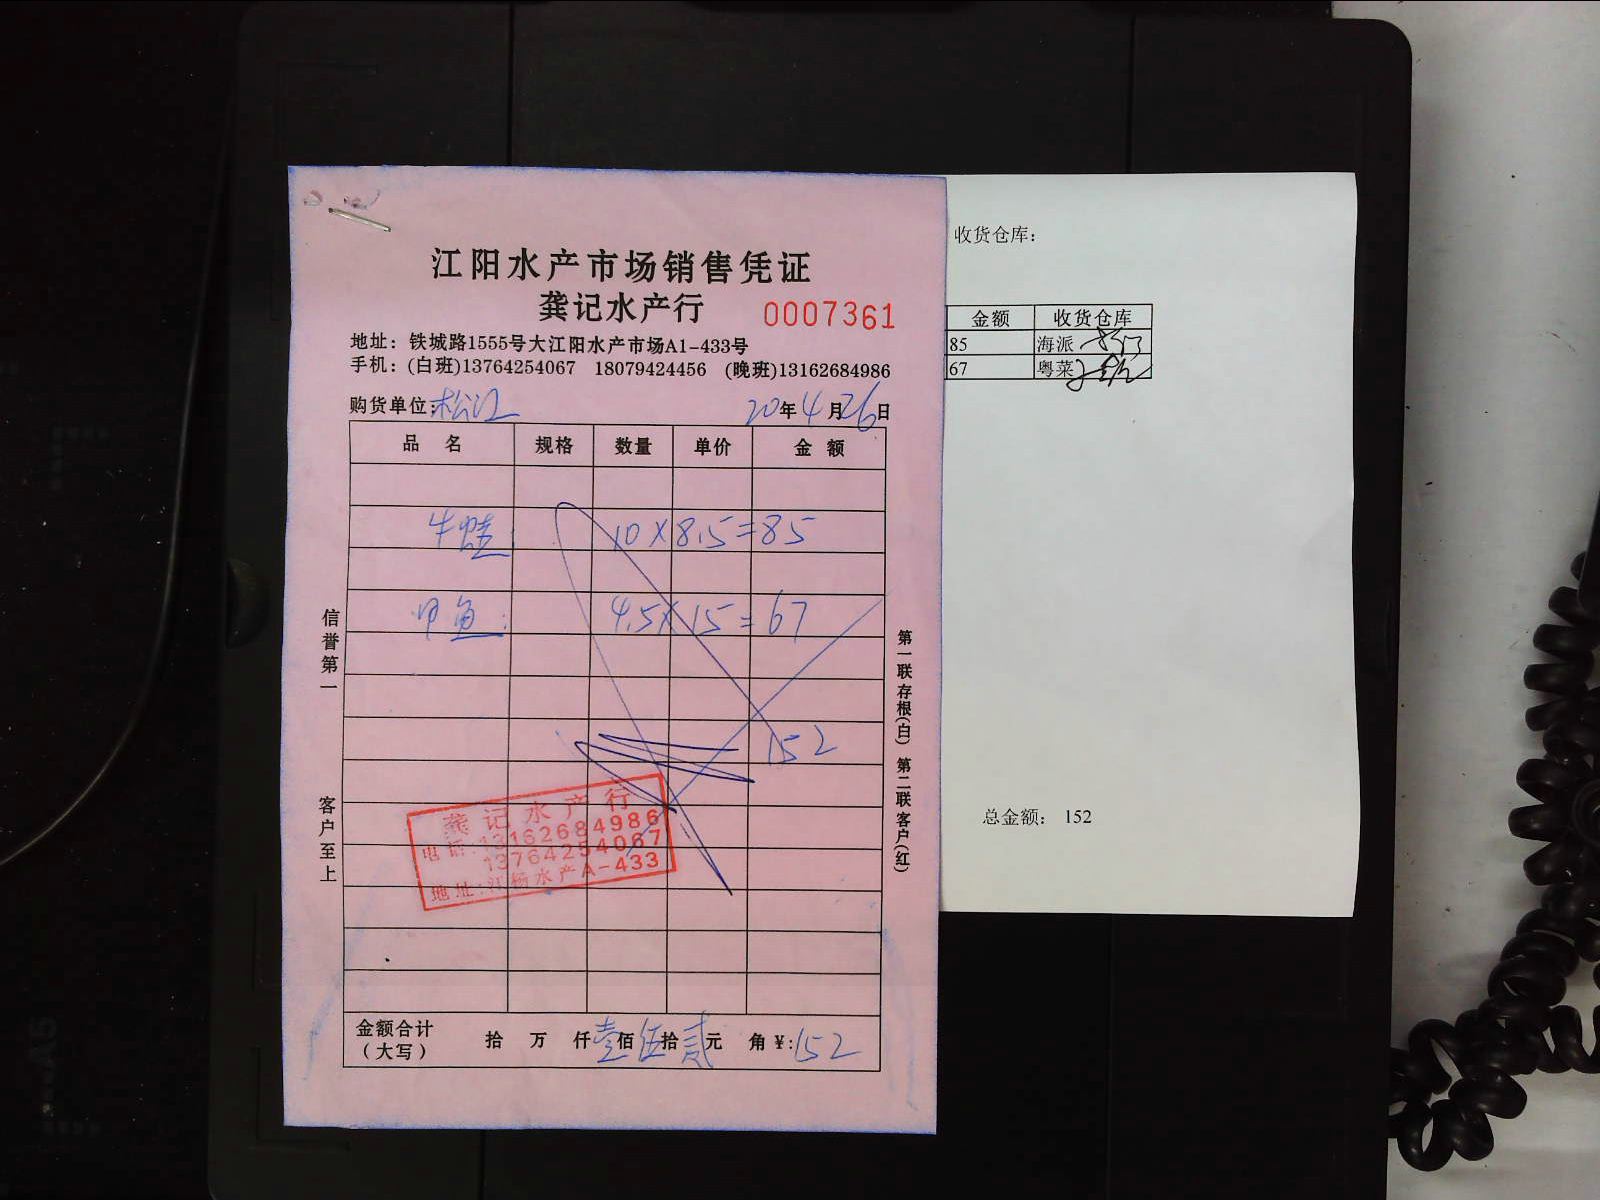 江阳水产市场销售凭证
龚记水产行 0007361
地址：铁城路1555号大江阳水产市场A1-433号
手机：(白班)13764254067 18079424456 (晚班)13162684986
购货单位：松江 20年4月26日
品 名 规格 数量 单价 金 额
牛蛙 10×8.5=85
甲鱼： 4.5×15=67
152
龚记水产行
电话：13162684986
13764254067
地址：江杨水产A-433
金额合计（大写） 拾 万 仟壹佰伍拾贰元 角￥:152
信誉第一
客户至上
第一联存根(白) 第二联客户(红)
收货仓库：
金额 收货仓库
85 海派
67 粤菜
总金额： 152